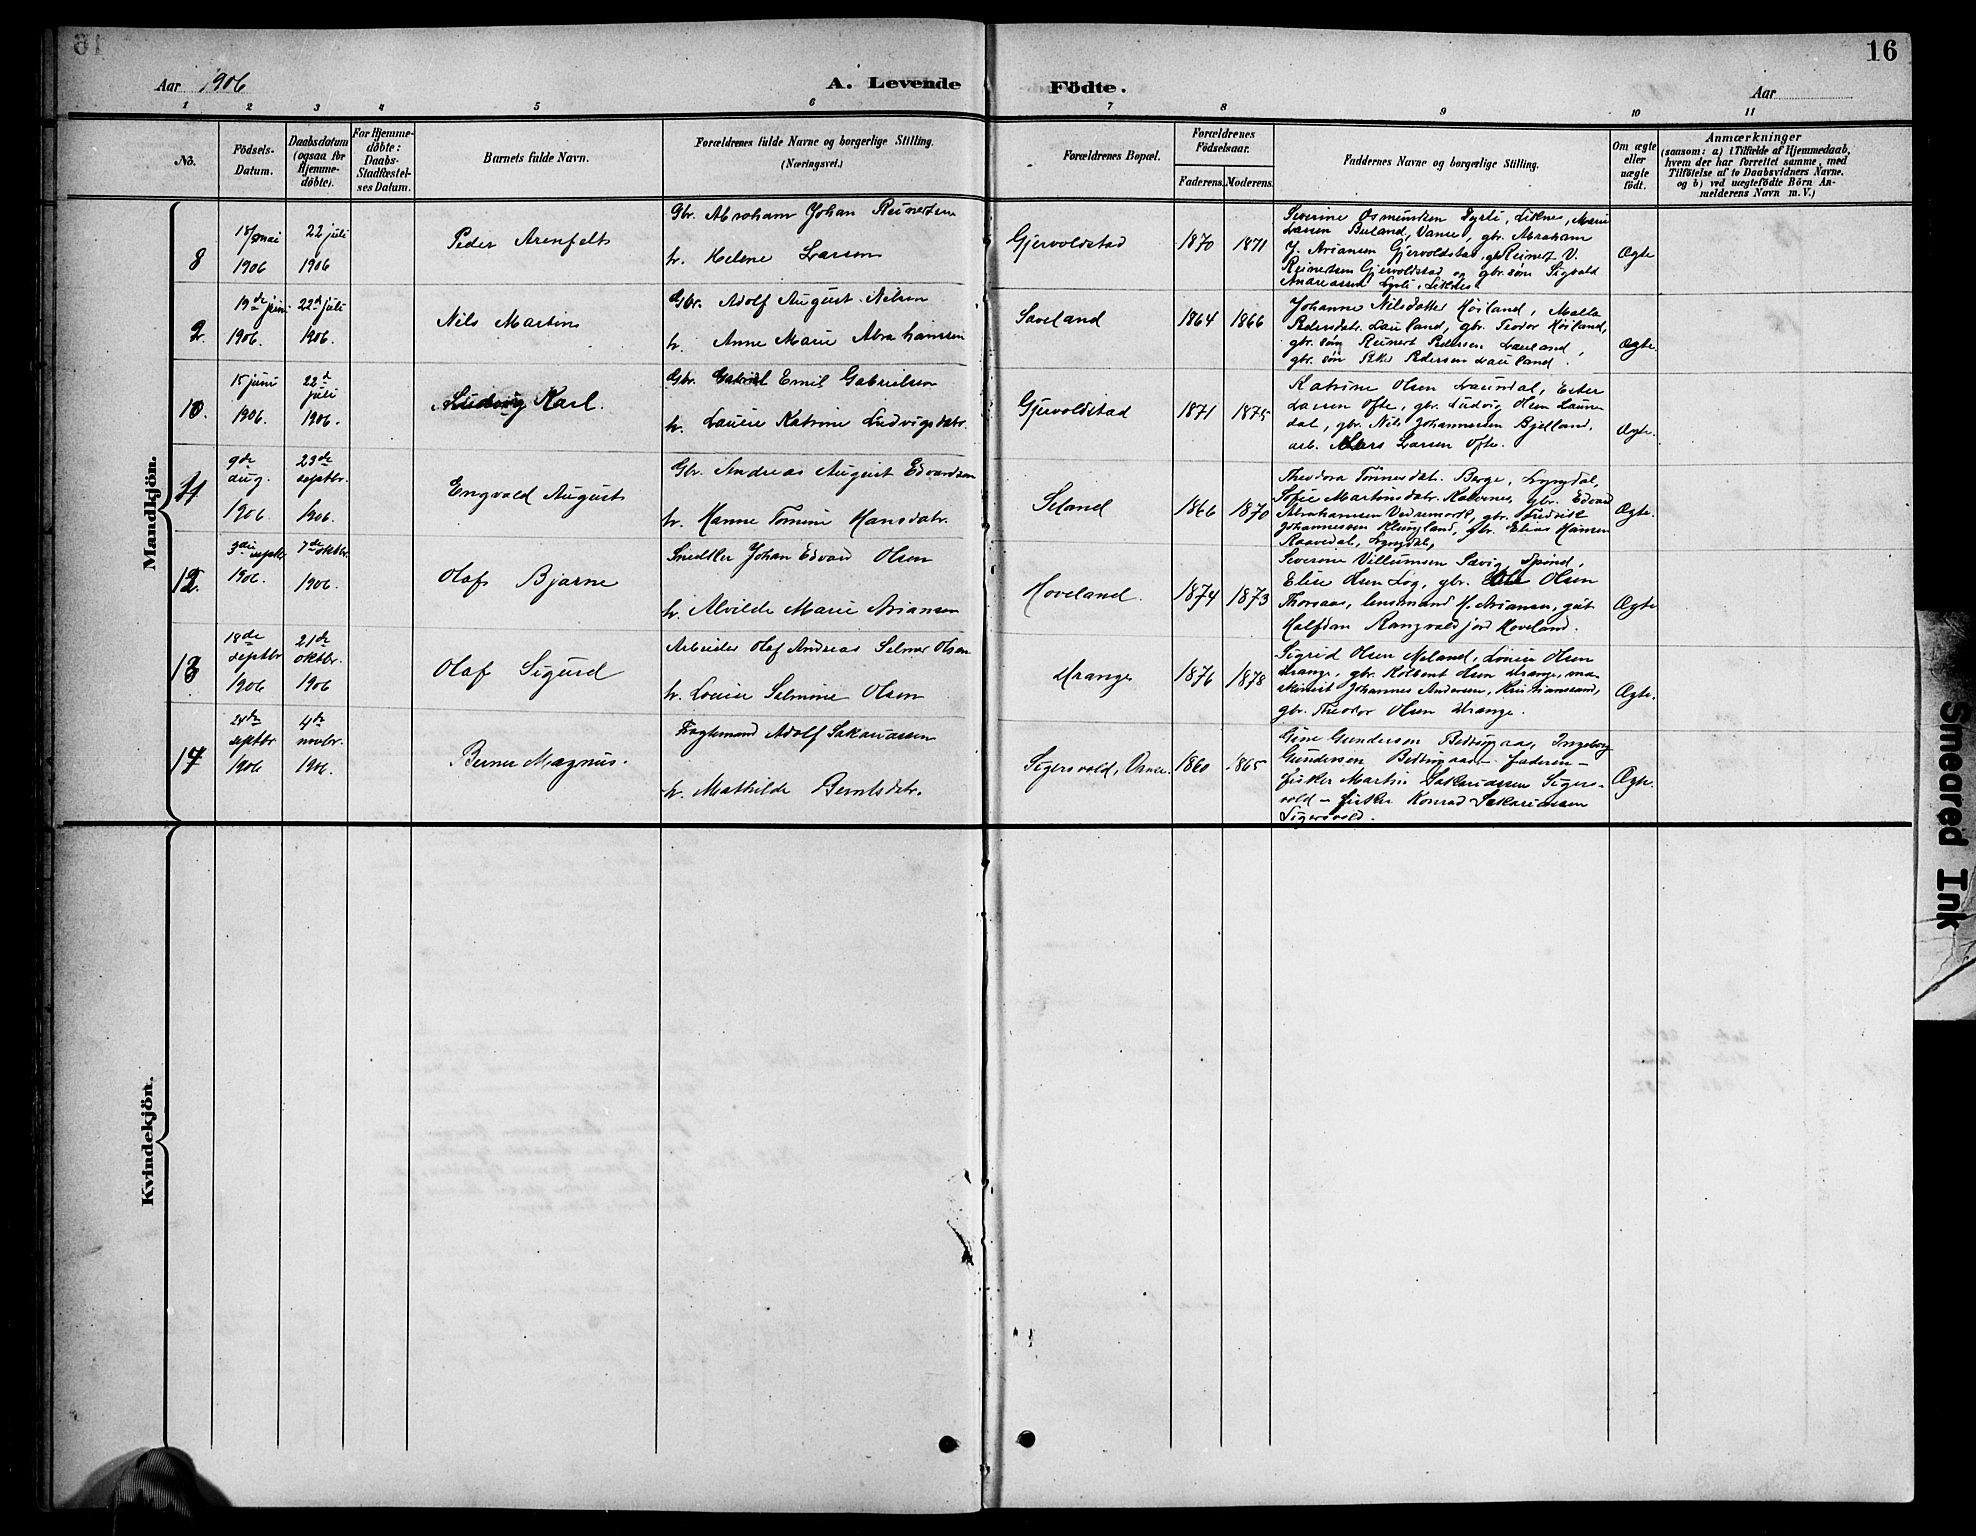 16
Aar 1906
A. Levende Födte.
Aar
1 2 3 4 5 6 7 8 9 10 11
No.
Födsels-
Datum.
Daabsdatum
(ogsaa for
Hjemme-
döbte).
For Hjemme-
döbte:
Daabs-
Stadfæstel-
ses Datum.
Barnets fulde Navn.
Forældrenes fulde Navne og borgerlige Stilling.
(Næringsvei.)
Forældrenes Bopæl.
Forældrenes
Födselsaar.
Faderens. Moderens.
Faddernes Navne og borgerlige Stilling.
Om ægte
eller
uægte
födt.
Anmærkninger
(saasom: a) i Tilfælde af Hjemmedaab,
hvem der har forrettet samme, med
Tilföielse af to Daabsvidners Navne.
og b) ved uægtefödte Börn An-
melderens Navn m. V.)
Mandkjön.
8
18/mai
1906
22 juli
1906
Peder Arenfelts
Gbr. Abraham Johan Reinertsen
h. Helene Larsen
Gjervoldstad
1870 1871
Severine Osmundsen Dyrli, Liknes, Marie
Larsen Briland, Vanse, gbr. Abraham
J. Ariansen Gjervoldstad, gbr Reinert V.
Reinertsen Gjervoldstad og gbr. søn Sigvald
Andreassen Dyrli, Liknes.
Ægte
9.
19de juni
1906.
22de juli
1906.
Nils Martin
Gbr. Adolf August Nilsen
h. Anne Marie Abrahamsen
Saveland
1864 1866
Johanne Nilsdatter Høiland, Malla
Pedersdatr. Lauland, gbr. Teodor Høiland,
gbr. søn Reinert Pedersen Lauland,
gbr. søn Peter Pedersen Lauland.
Ægte.
10.
15 juni
1906.
22de
juli
1906.
Ludvig Karl.
Gbr. Gabriel Emil Gabrielsen
h. Lauise Katrine Ludvigsdatr.
Gjervoldstad
1871 1875
Katrine Olsen Laundal, Ester
Larsen Ofte, gbr. Ludvig Olsen Laun-
dal, gbr. Nils Johannessen Bjelland,
arb. Lars Larsen Ofte.
Ægte.
11
9de
aug.
1906
23de
septbr.
1906.
Engvald August
Gbr. Andreas August Edvardsen
h. Hanne Tomine Hansdatr.
Seland
1866 1870
Theodora Tönnesdat. Berge, Lyngdal,
Sofie Martinsdatr. Kalvenes, gbr. Edvard
Abrahamsen Vedremork, gbr. Fredrik
Johannessen Klungland, gbr. Elias Hansen
Raavedal, Lyngdal,
Ægte.
12.
3die septbr
1906.
7de oktbr.
1906.
Olaf Bjarne
Snedker Johan Edvard Olsen
h. Alvilde Marie Ariansen
Hoveland.
1874 1873
Severine Villumsen Sævig, Spind,
Elise Olsen Log, gbr. Olsen
Thorsaas, lensmand H. Ariansen, gut
Halfdan Rangvaldsjord Hoveland.
Ægte
13
18de
septbr
1906
21de
oktbr.
1906
Olaf Sigurd
Arbeider Olaf Andreas Selmer Olsen
h. Louise Selmine Olsen
Drange
1876 1878
Sigrid Olsen Meland, Louise Olsen
Drange, gbr. Kolbent Olsen Drange, ma-
skinist Johannes Andersen, Kristianssand,
gbr. Theodor Olsen Drange.
Ægte.
14
24de
septbr
1906
4de
novbr.
1906.
Berner Magnus.
Fragtemand Adolf Sakariassen
h. Mathilde Berntsdatr.
Sigersvold, Vanse.
1860 1865
Gine Gundersen Bedrugaa, Ingeborg
Gundersen Bedrugaa - faderen -
fisker Martin Sakariassen Sigers-
vold - fisker Konrad Sakariassen
Sigersvold.
Ægte.
Kvindekjön.
Smeared Ink